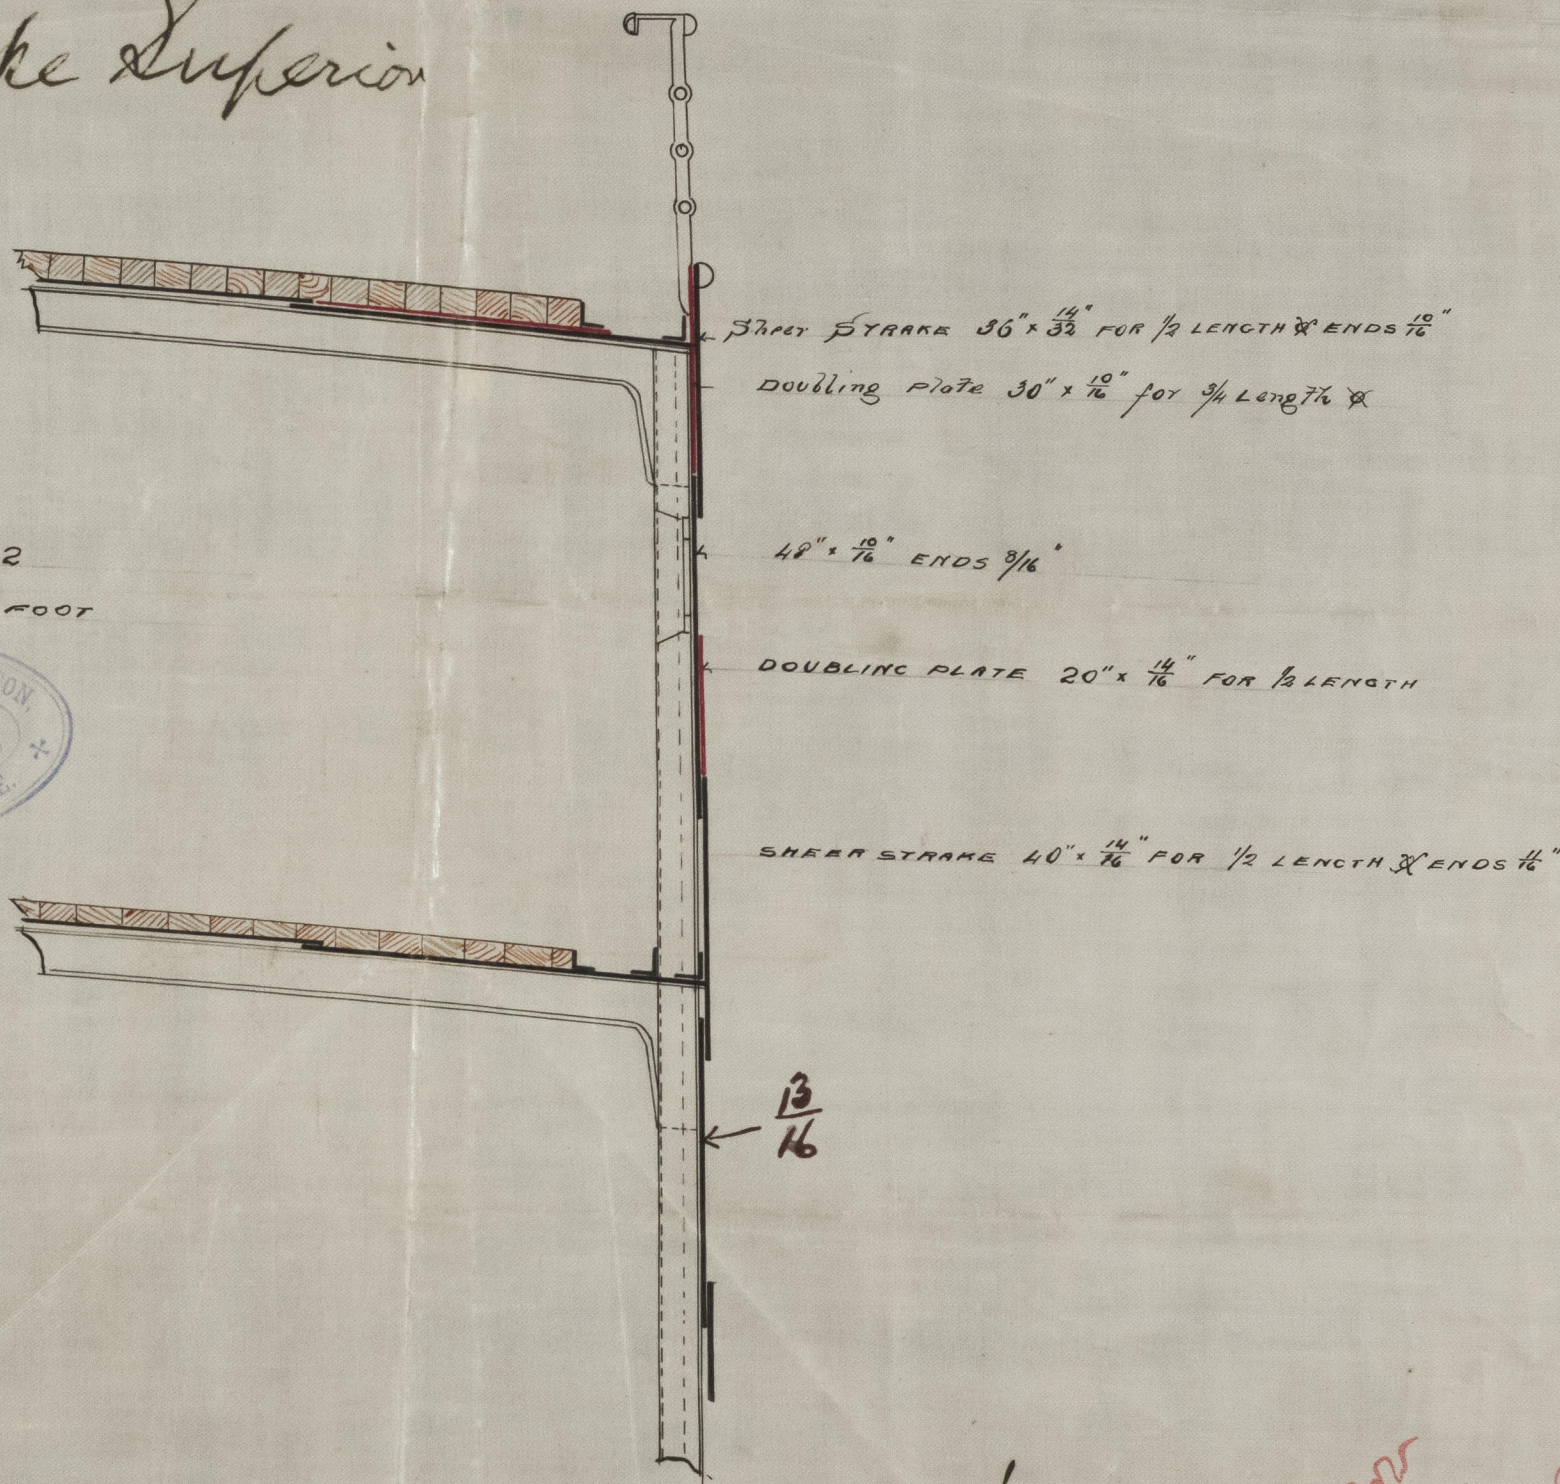 ke Superior
Sheer STRAKE 36" x 14/32" FOR 1/2 LENGTH ENDS 10/16"
Doubling Plate 30" x 10/16" for 3/4 Length
48" x 10/16" ENDS 8/16"
2
FOOT
DOUBLING PLATE 20" x 14/16" FOR 1/2 LENGTH
ON,
E.
SHEER STRAKE 40" x 14/16" FOR 1/2 LENGTH ENDS 11/16"
13/16